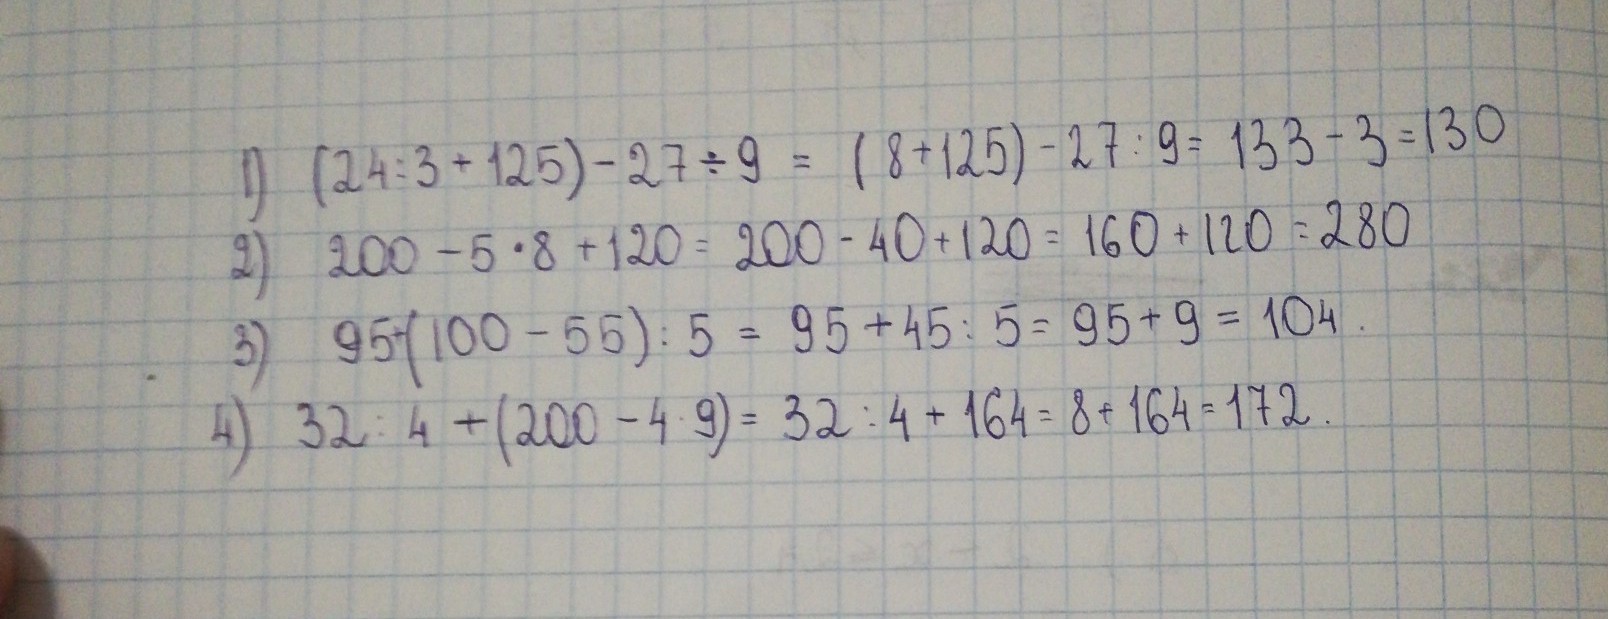 1) (24:3+125)-27÷9 = (8+125)-27:9= 133-3=130
2) 200-5•8+120= 200-40+120= 160+120=280
3) 95+(100-55):5 = 95+45:5= 95+9=104.
4) 32:4+(200-4·9)= 32:4+164=8+164=172.